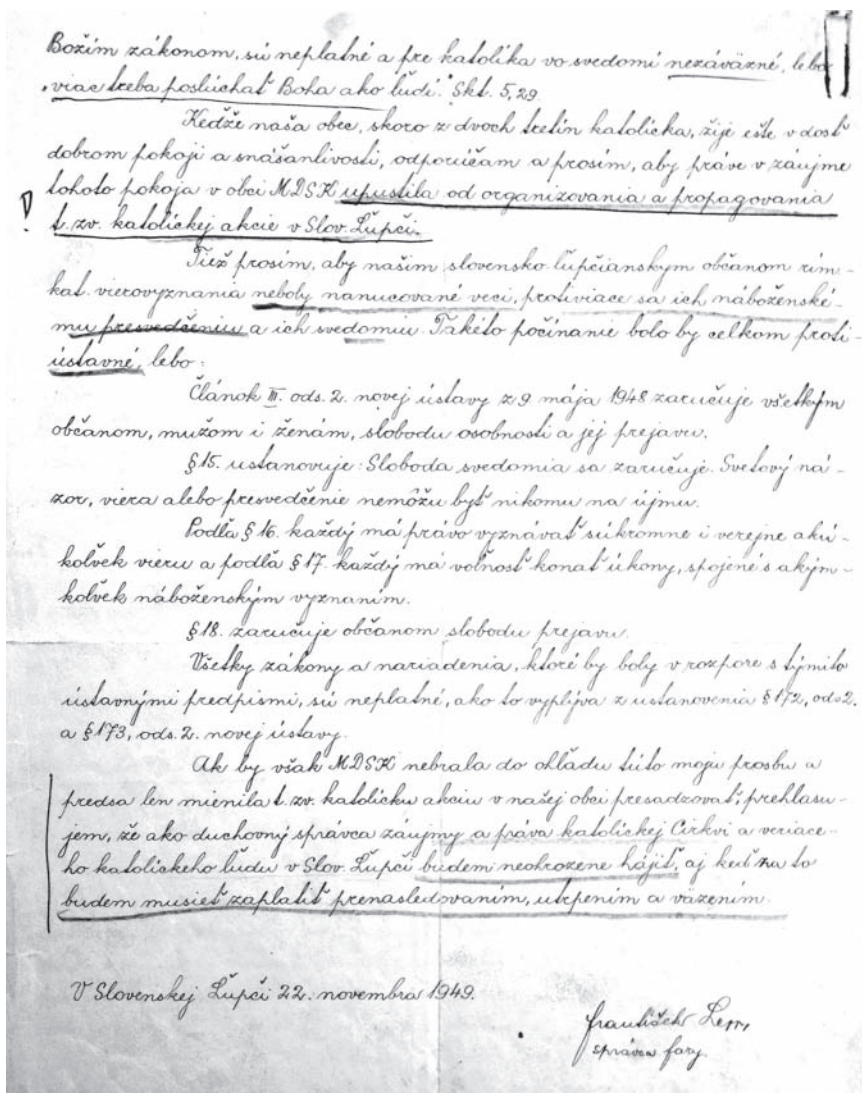 Božím zákonom, sú neplatné a pre katolíka vo svedomí nezáväzné, lebo
„viac treba poslúchať Boha ako ľudí." Skt. 5, 29.
Kedže naša obec, skoro z dvoch tretín katolícka, žije ešte v dosť
dobrom pokoji a snášanlivosti, odporúčam a prosím, aby práve v záujme
tohoto pokoja v obci MDSK upustila od organizovania a propagovania
t. zv. katolíckej akcie v Slov. Ľupči.
Tiež prosím, aby našim slovensko-ľupčianskym občanom rím.
kat. vierovyznania neboly nanucované veci, protiviace sa ich náboženské-
mu presvedčeniu a ich svedomiu. Takéto počínanie bolo by celkom proti-
ústavné, lebo:
Článok III. ods. 2. novej ústavy z 9 mája 1948 zaručuje všetkým
občanom, mužom i ženám, slobodu osobnosti a jej prejavu.
§ 15. ustanovuje: Sloboda svedomia sa zaručuje. Svetový ná-
zor, viera alebo presvedčenie nemôžu byť nikomu na újmu.
Podľa § 16. každý má právo vyznávať súkromne i verejne akú-
koľvek vieru a podľa § 17. každý má voľnosť konať úkony, spojené s akým-
koľvek náboženským vyznaním.
§ 18. zaručuje občanom slobodu prejavu.
Všetky zákony a nariadenia, ktoré by boly v rozpore s týmito
ústavnými predpismi, sú neplatné, ako to vyplýva z ustanovenia § 172, ods 2.
a § 173, ods. 2. novej ústavy.
Ak by však MDSK nebrala do ohľadu túto moju prosbu a
predsa len mienila t. zv. katolícku akciu v našej obci presadzovať, prehlasu-
jem, že ako duchovný správca záujmy a práva katolíckej Cirkvi a veriace-
ho katolíckeho ľudu v Slov. Ľupči budem neohrozene hájiť, aj keď za to
budem musieť zaplatiť prenasledovaním, utrpením a väzením.
V Slovenskej Ľupči 22. novembra 1949.
František
správca fary.